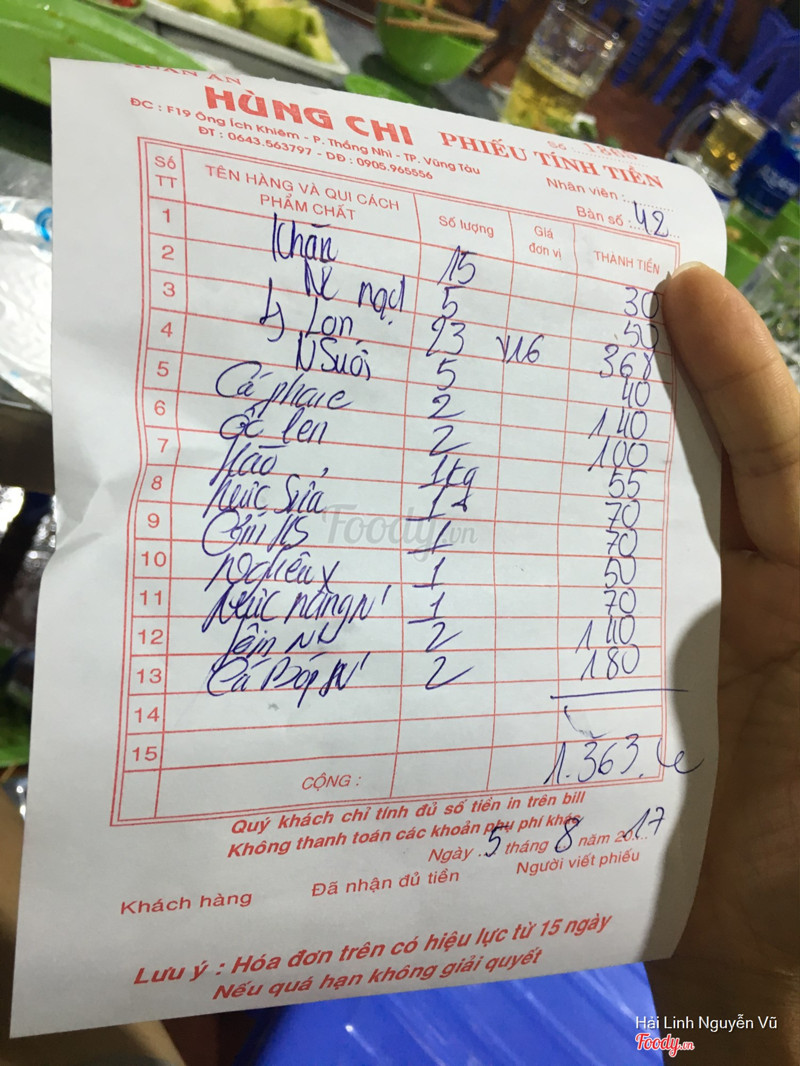 QUÁN ĂN
HÙNG CHI
ĐC : F19 Ông Ích Khiêm - P. Thắng Nhì - TP. Vũng Tàu
ĐT : 0643.563797 - DĐ : 0905.965556
Số 1865
PHIẾU TÍNH TIỀN
Nhân viên :
Bàn số : 42
Số TT TÊN HÀNG VÀ QUI CÁCH PHẨM CHẤT Số lượng Giá đơn vị THÀNH TIỀN
1 Khăn 15 30
2 N ngọt 5 50
3 Lon 23 16 368
4 N Suối 5 40
5 Cá 2 140
6 Ốc len 2 100
7 Hào 1kg 55
8 Mực Sữa 1 70
9 Cơm HS 1 70
10 Nghêu 1 50
11 Mực nắng N 1 70
12 2 140
13 Cá Bóp N 2 180
14
15
CỘNG : 1.363
Quý khách chỉ tính đủ số tiền in trên bill
Không thanh toán các khoản phụ phí khác
Ngày 5 tháng 8 năm 2017
Khách hàng Đã nhận đủ tiền Người viết phiếu
Lưu ý : Hóa đơn trên có hiệu lực từ 15 ngày
Nếu quá hạn không giải quyết
Foody.vn
Hải Linh Nguyễn Vũ
Foody.vn